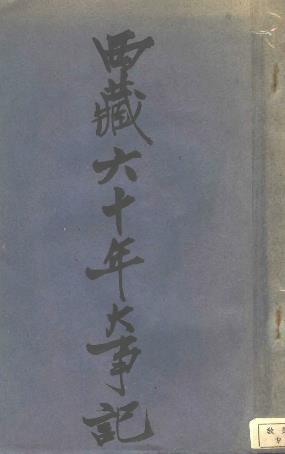 西藏六十年大事記